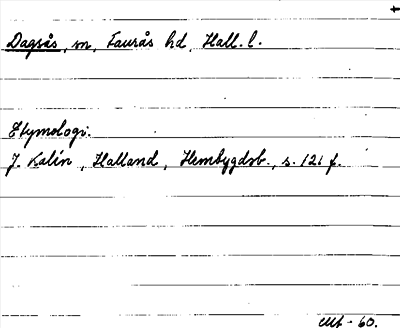 +
Dagsås, sn, Faurås hd, Hall. l.
Etymologi.
J. Kalén, Halland, Hembygdsb., s. 121 f.
60.